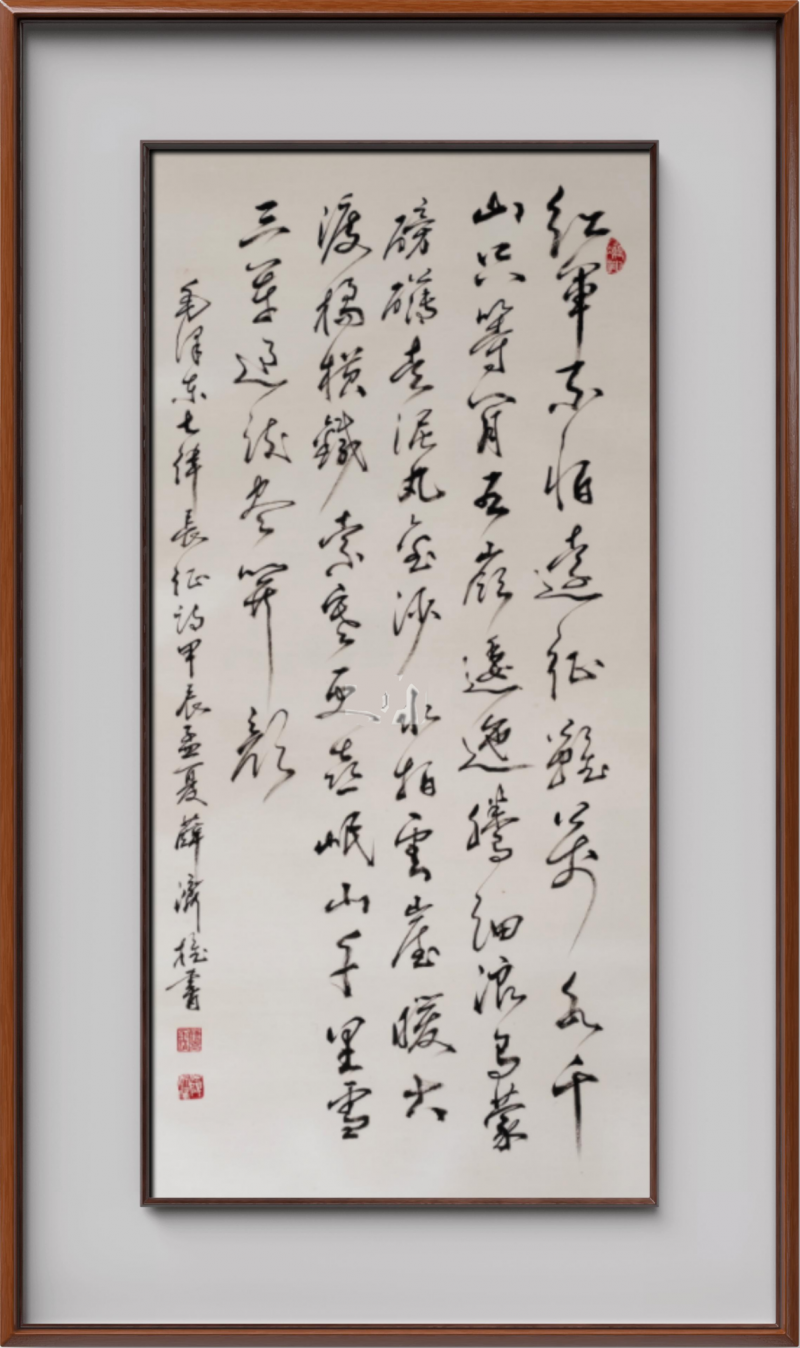 紅軍不怕遠征難萬水千
山只等閒五嶺逶迤騰細浪烏蒙
磅礴走泥丸金沙水拍雲崖暖大
渡橋橫鐵索寒更喜岷山千里雪
三軍過後盡開顏
毛澤东七律長征詩甲辰孟夏薛濟書